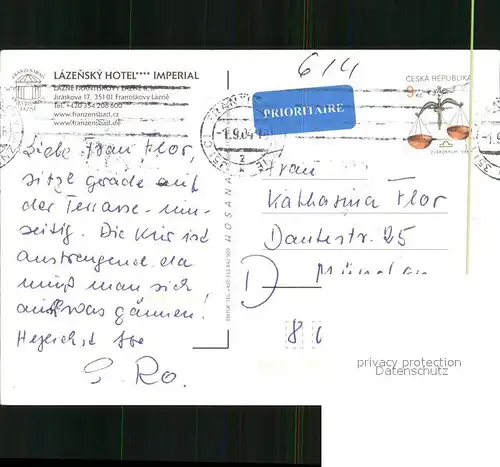 614
LÁZEŇSKÝ HOTEL**** IMPERIAL
LÁZNĚ FRANTIŠKOVY LÁZNĚ a.s.
Jiráskova 17, 35101 Františkovy Lázně
Tel. +420 354 206 600
www.franzensbad.cz
www.franzensbad.de
FRANZENSBAD
FRANTIŠKOVY
LÁZNĚ
PRIORITAIRE
ČESKÁ REPUBLIKA
9 Kč
-1.9.04
2
Liebe Frau Flor,
sitze gerade auf
der Terrasse -
Die Kur ist
anstrengend da
muß man sich
auch was gönnen!
Herzlichst Ihre
G. Ro.
HOSANA
Frau
Katharina Flor
Dantestr. 25
München
D
8
privacy protection
Datenschutz